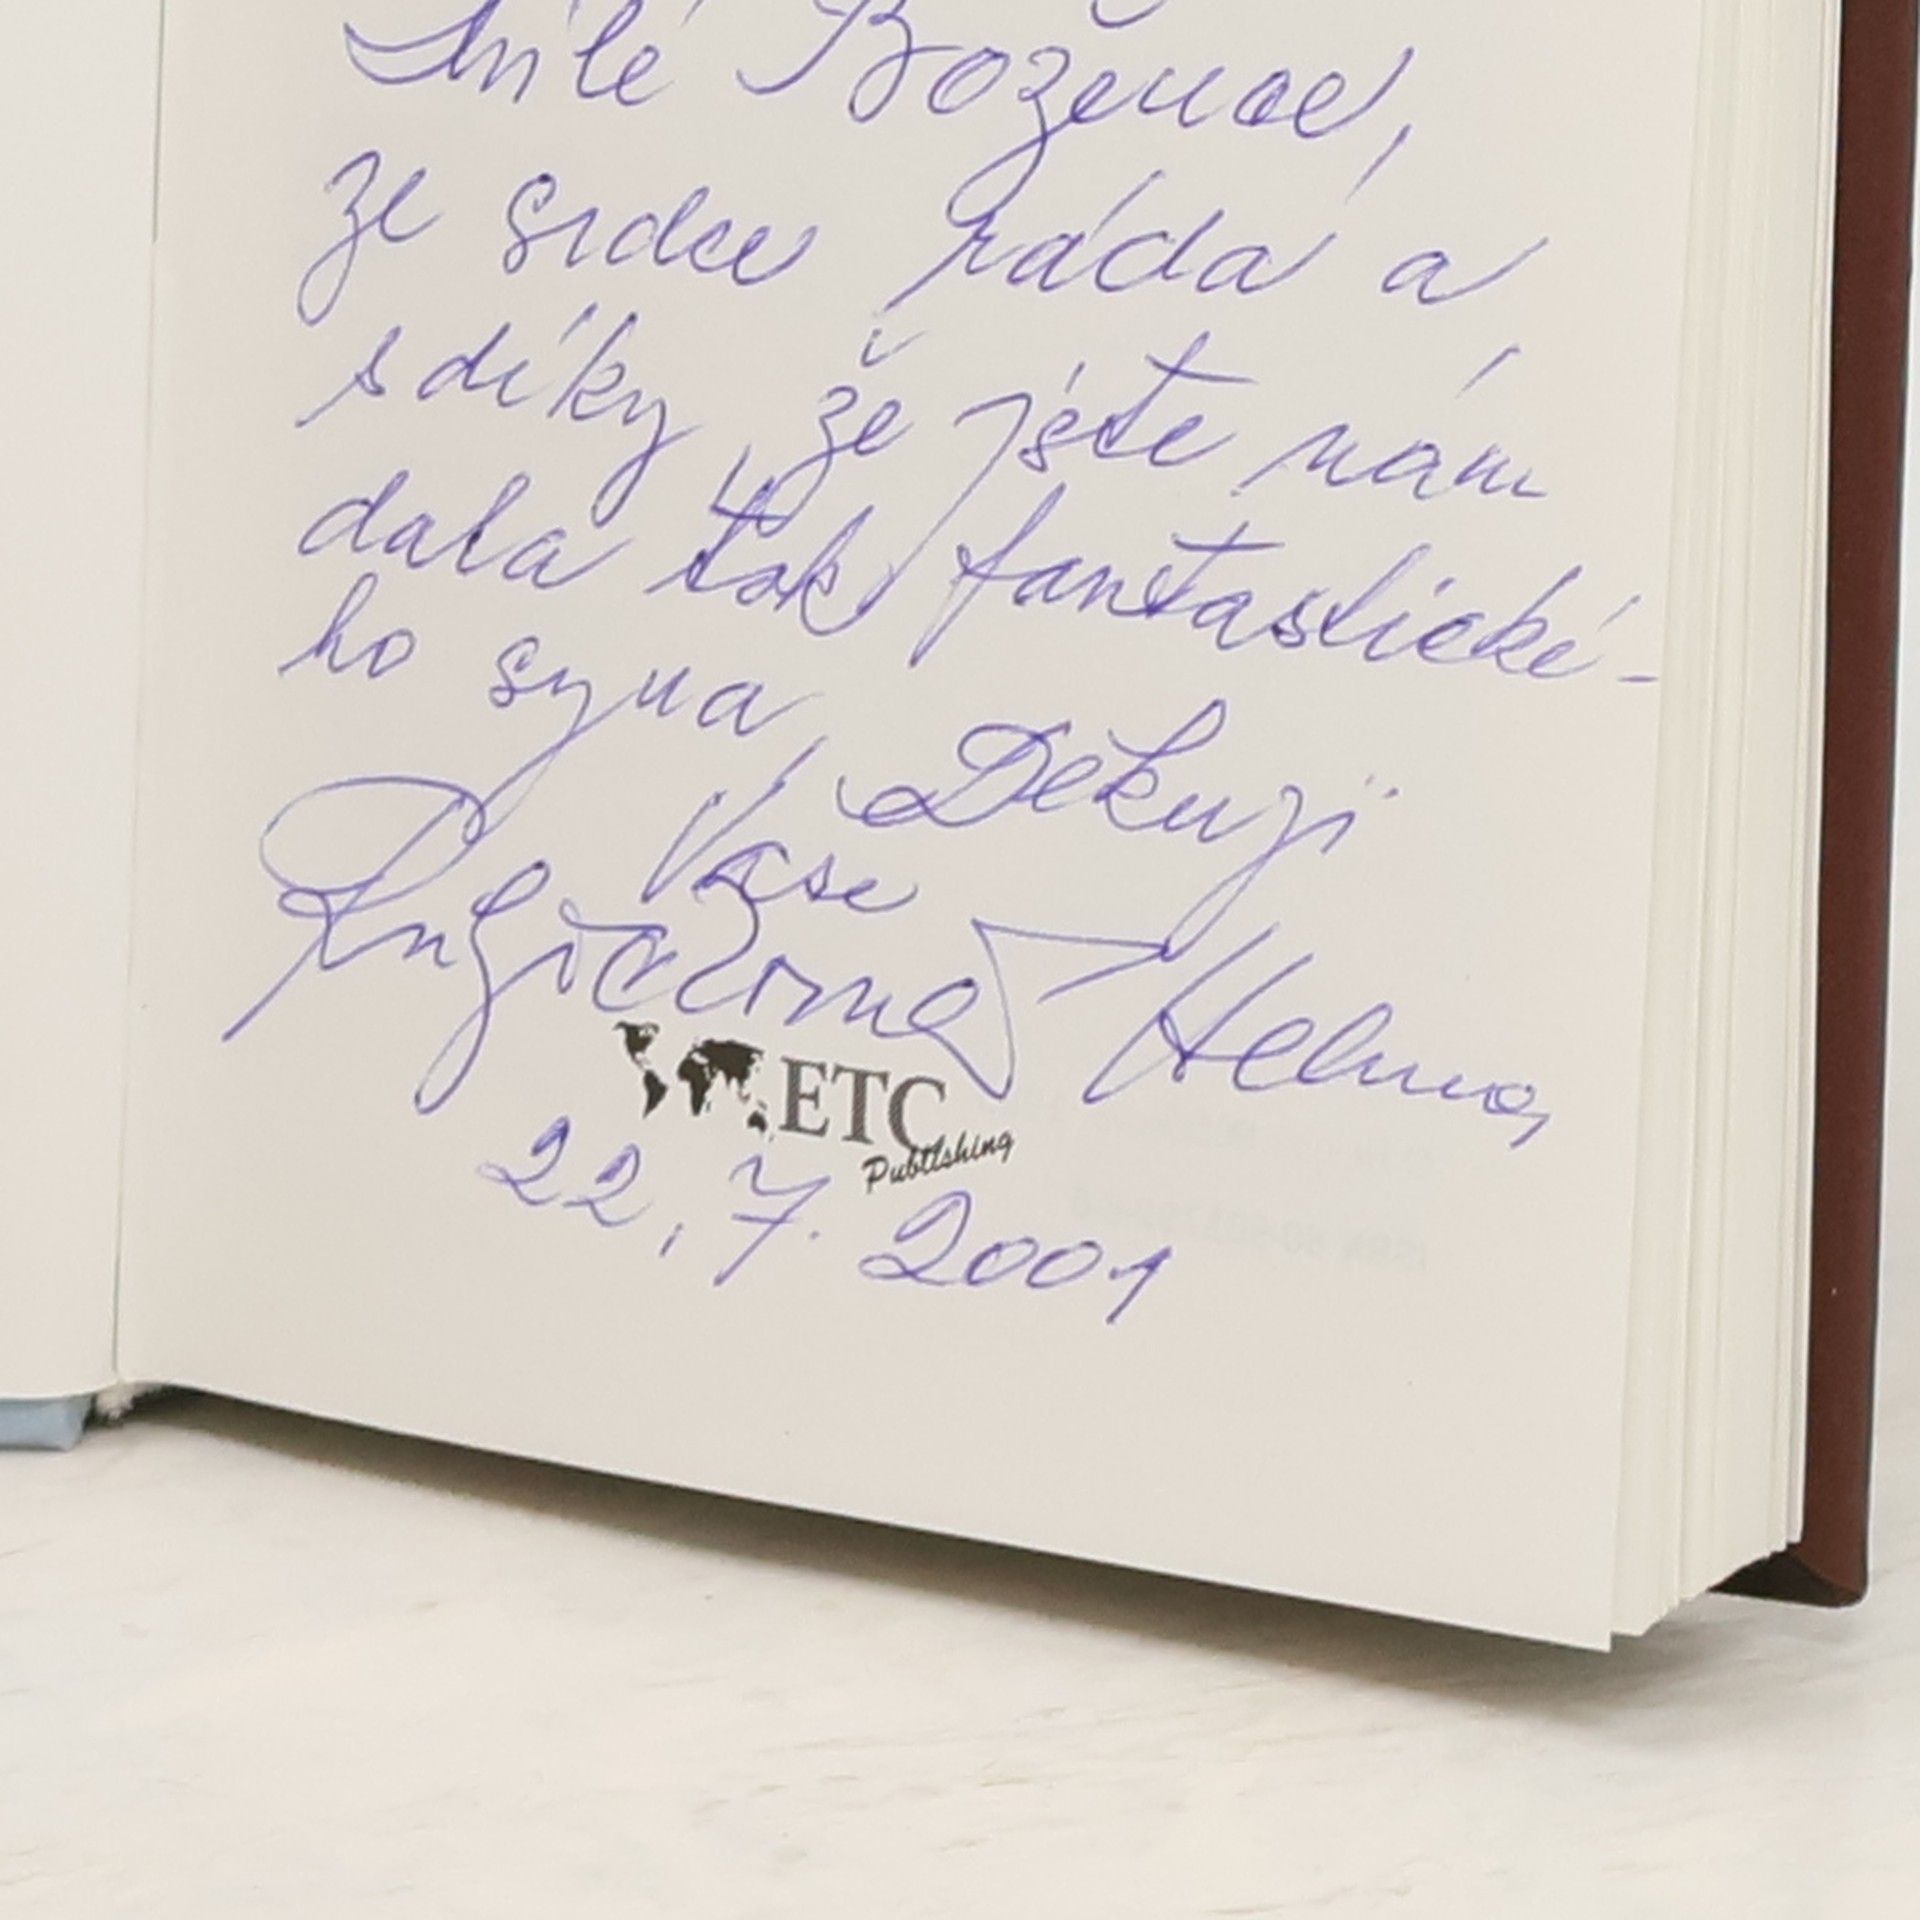 Milé Božence,
ze srdce ráda a
s díky, že jste nám
dala tak fantastické-
ho syna, Děkuji
Vaše
Růžičková Helena,
ETC
Publishing
22. 7. 2001